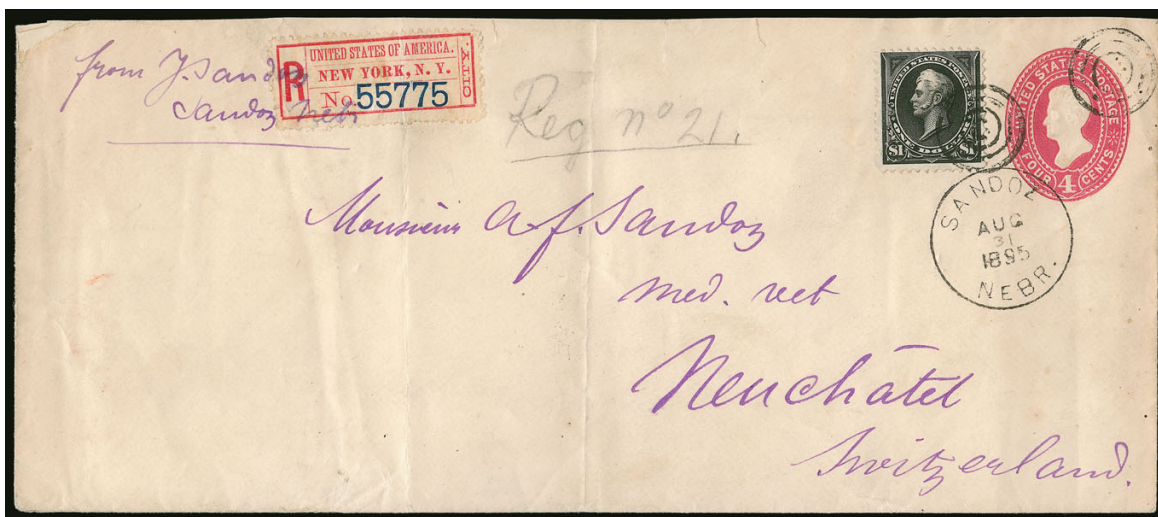 from J. Sandoz
Sandoz Nebr
UNITED STATES OF AMERICA.
NEW YORK, N. Y.
R
No. 55775
Reg no 21.
UNITED STATES POSTAGE
ONE DOLLAR
$1 $1
UNITED STATES POSTAGE
FOUR 4 CENTS
SANDOZ
AUG
31
1895
NEBR.
Monsieur A. f. Sandoz
med. vet
Neuchâtel
Switzerland.